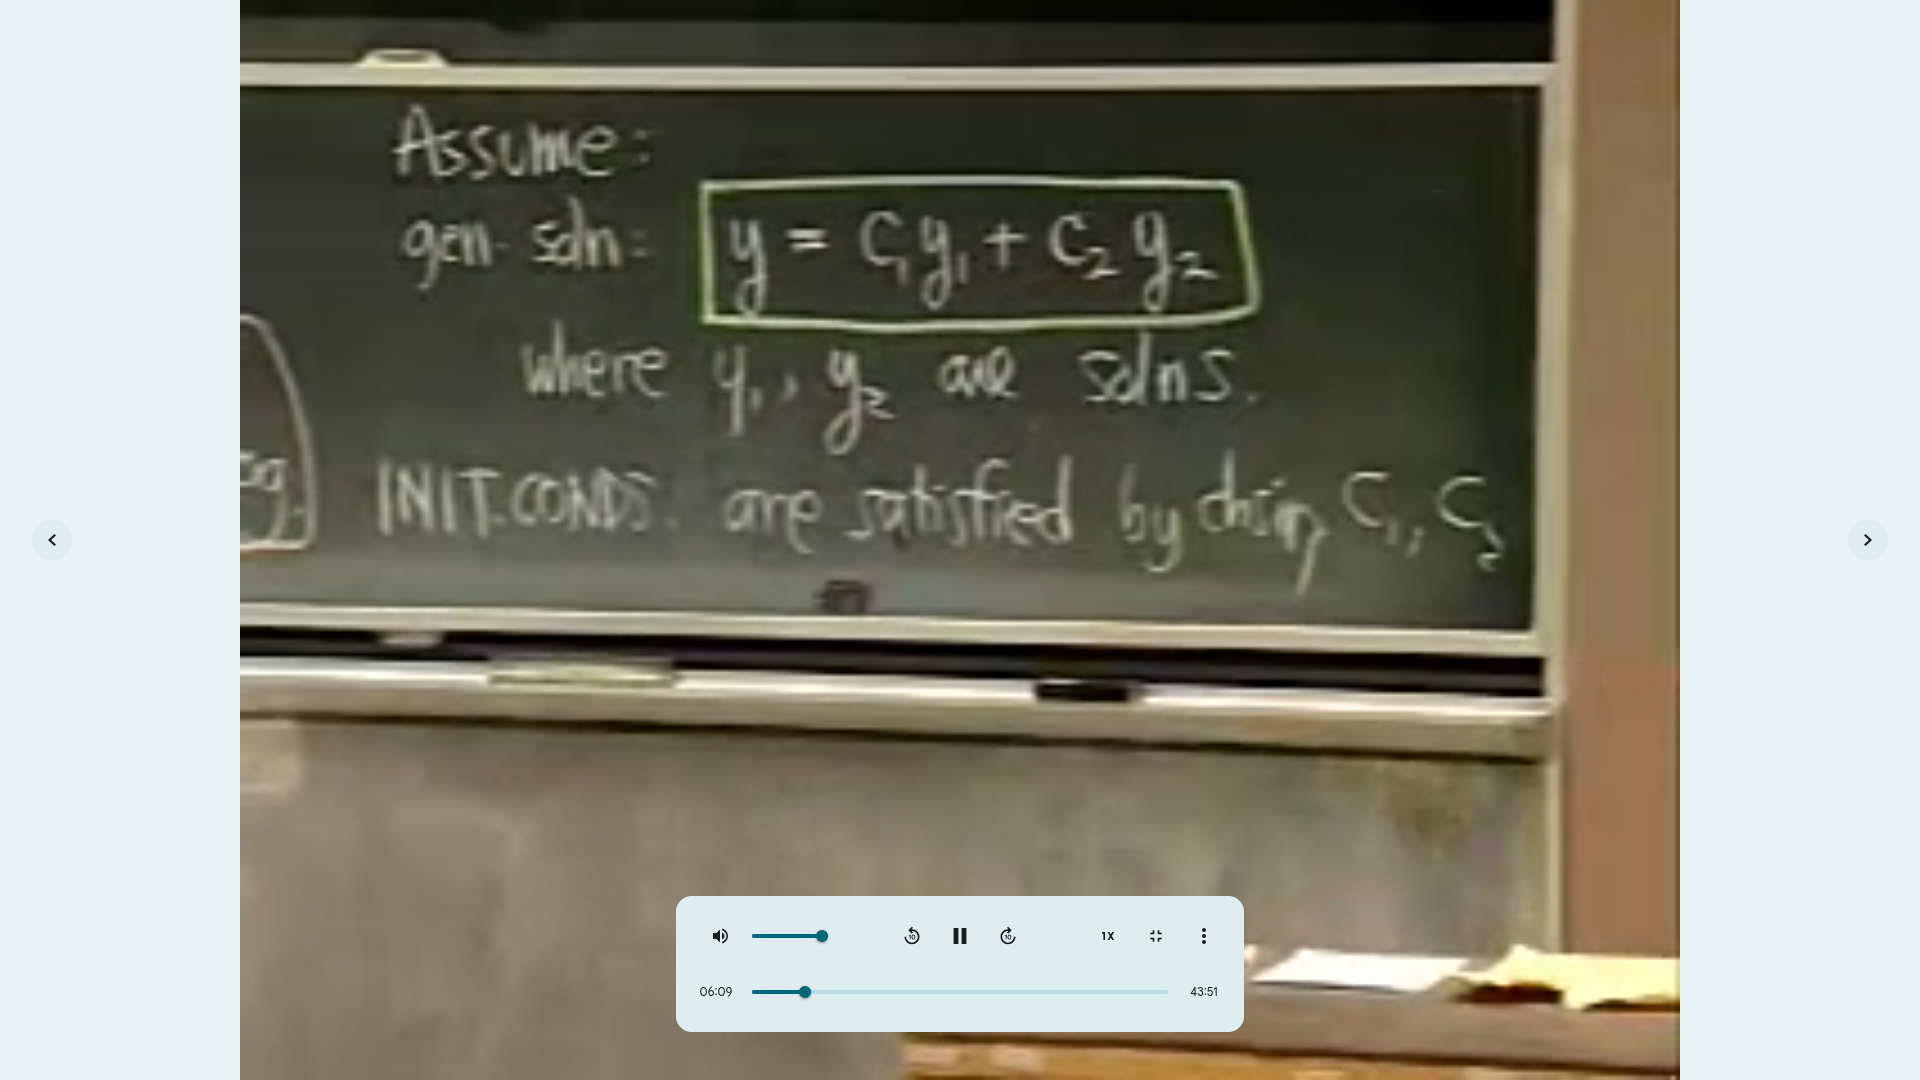 Assume:
gen. soln: y = c₁y₁ + c₂y₂
where y₁, y₂ are solns.
INIT. CONDS. are satisfied by chsing c₁, c₂
1X
06:09
43:51